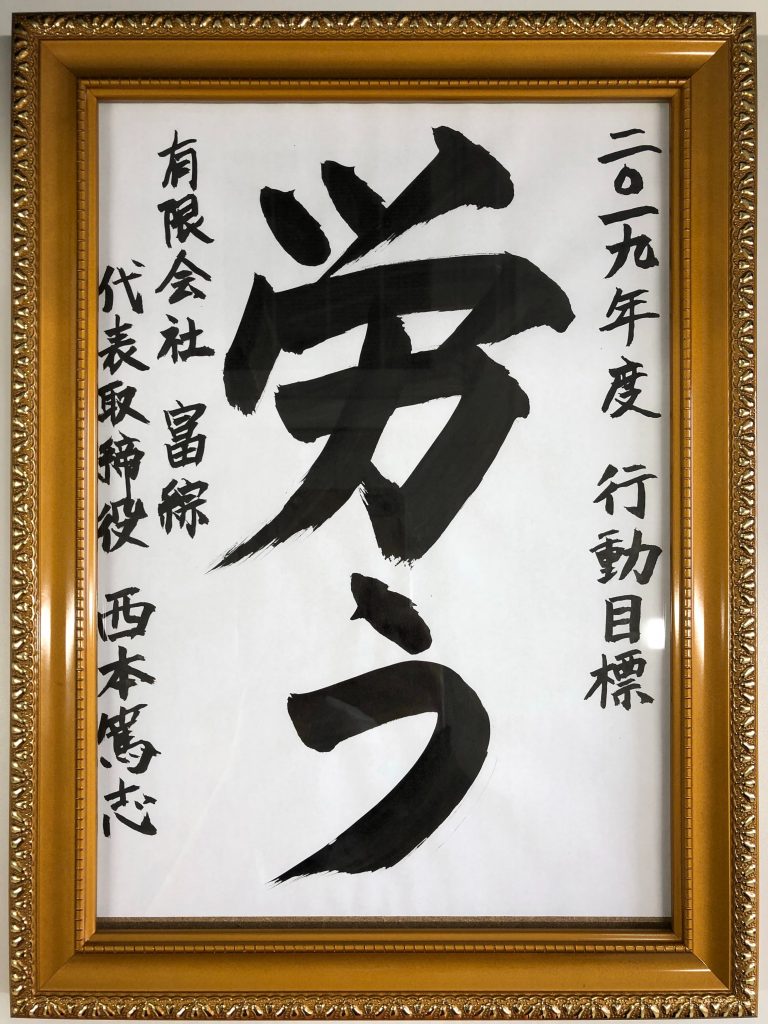 二〇一九年度 行動目標
労う
有限会社 富綜
代表取締役 西本篤志